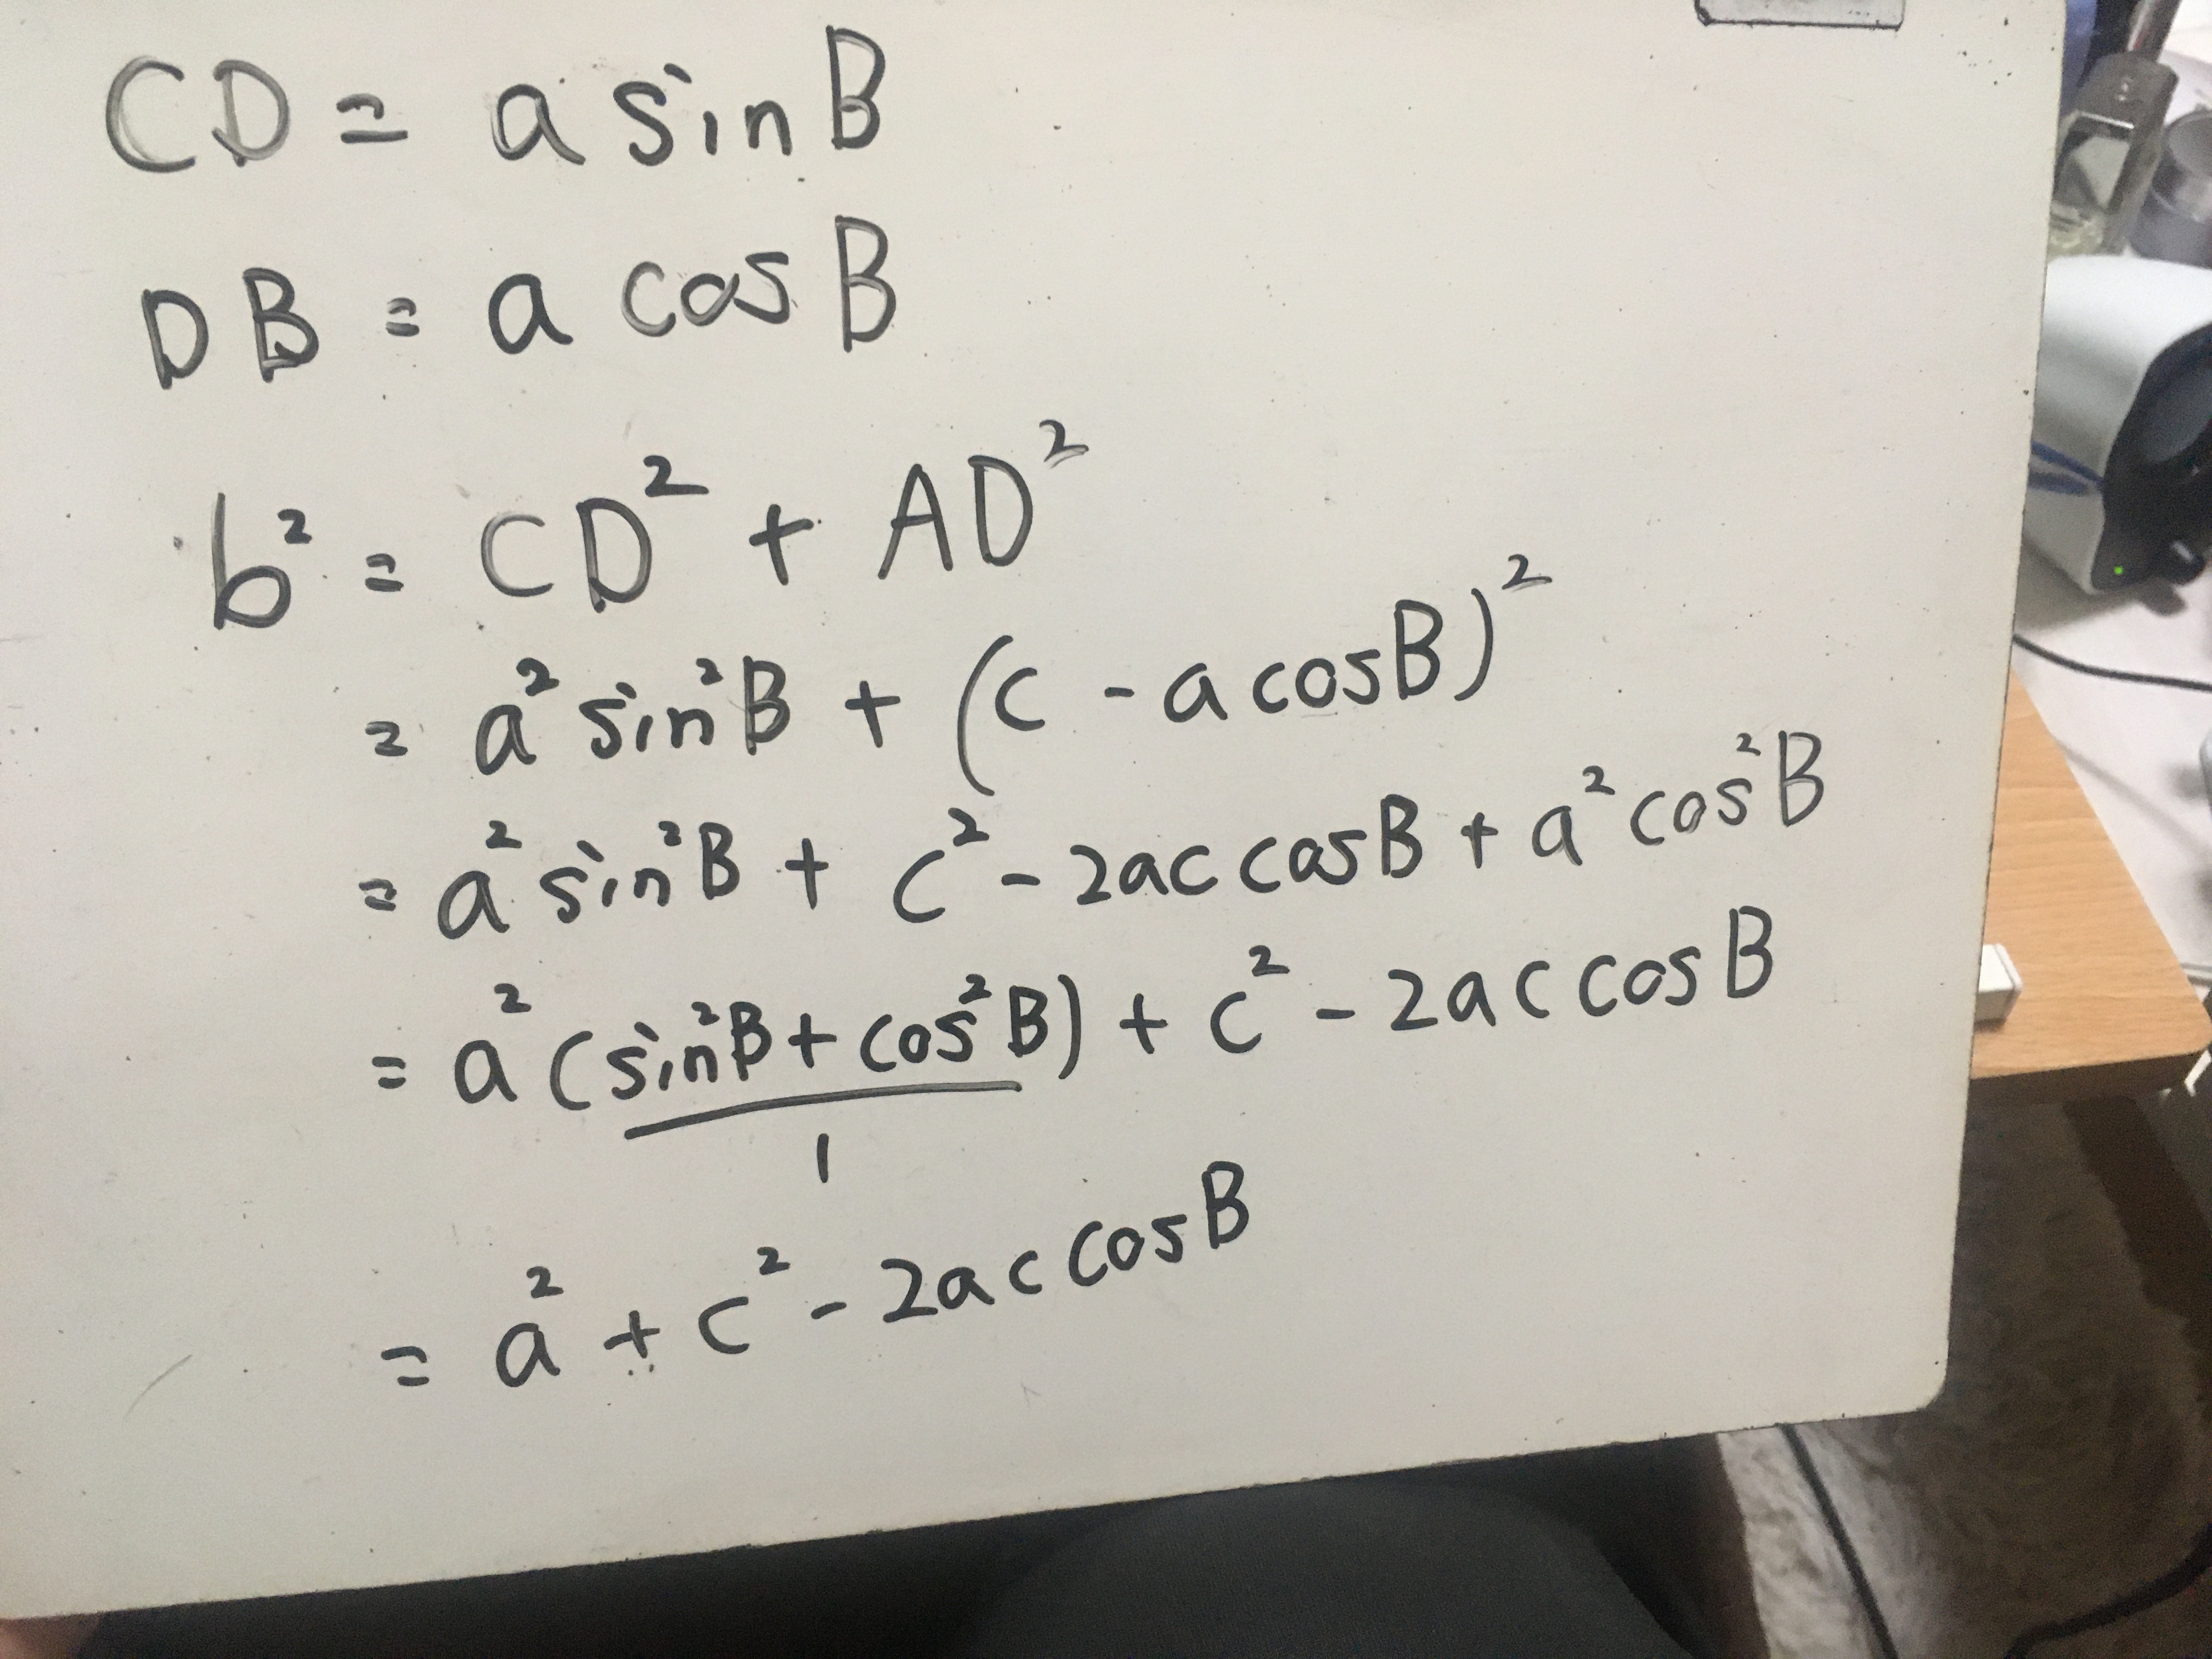 CD = a sin B
DB = a cos B
b² = CD² + AD²
= a² sin²B + (c - a cosB)²
= a² sin²B + c² - 2ac cosB + a² cos²B
= a² (sin²B + cos²B) + c² - 2ac cosB
1
= a² + c² - 2ac cosB